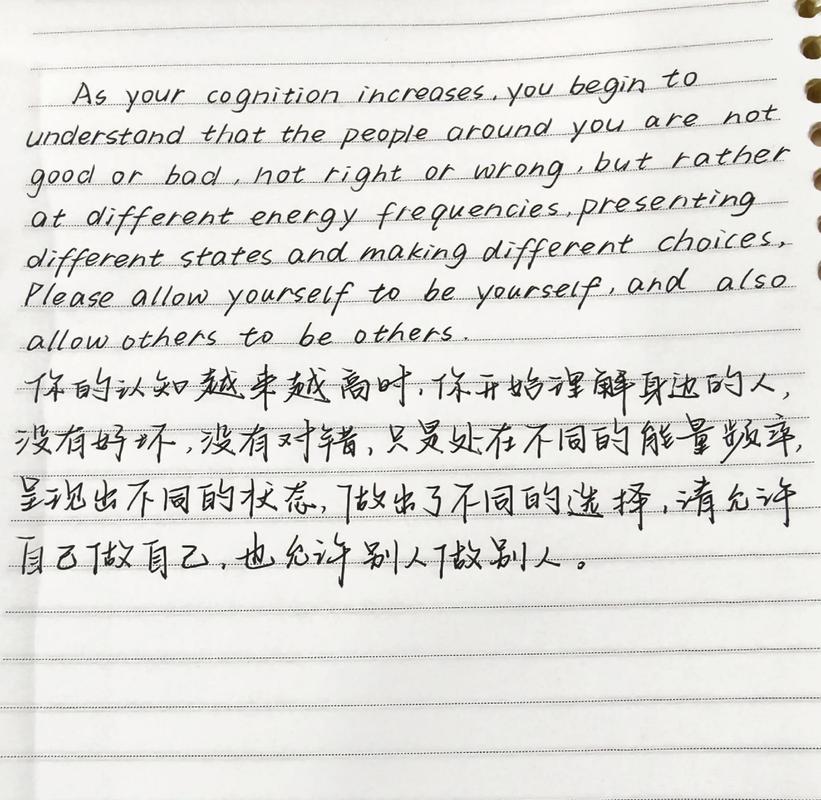 As your cognition increases, you begin to
understand that the people around you are not
good or bad, not right or wrong, but rather
at different energy frequencies, presenting
different states and making different choices,
Please allow yourself to be yourself, and also
allow others to be others.
你的认知越来越高时，你开始理解身边的人，
没有好坏，没有对错，只是处在不同的能量频率，
呈现出不同的状态，做出了不同的选择，请允许
自己做自己，也允许别人做别人。